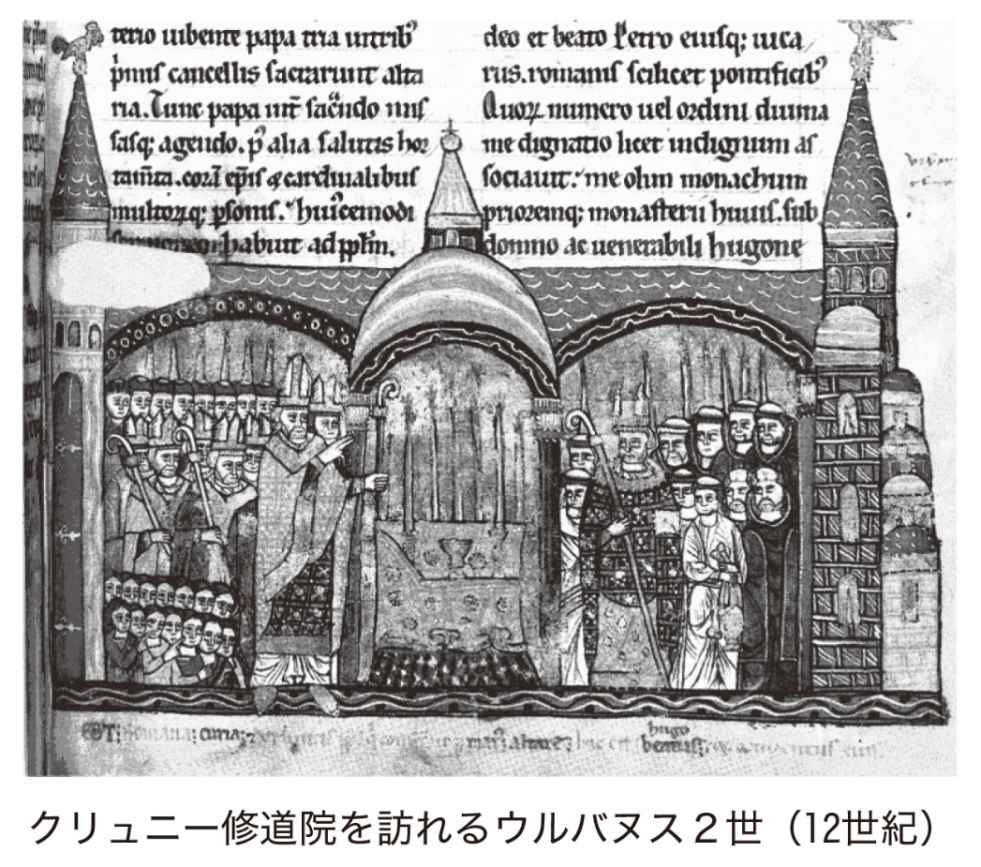 terio iubente papa tria in tribꝰ
p̄mis cancellis sacrarunt alta
ria. Tunc papa int̄ sac̄ndo mis
sasq; agendo. p̄ alia salutis hor
tam̄ta. corā ep̄is & cardinalibus
multoꝝq; p̄sonis. huiꝰcemodi
habuit ad pp̄lm.
deo et beato Petro eiusq; uica
riis. romanis scilicet pontificibꝰ
Quoꝝ numero uel ordini diuina
me dignatio licet indignum as
sociauit. me olim monachum
prioremq; monasterii huius. sub
domno ac uenerabili hugone
hugo
クリュニー修道院を訪れるウルバヌス2世（12世紀）